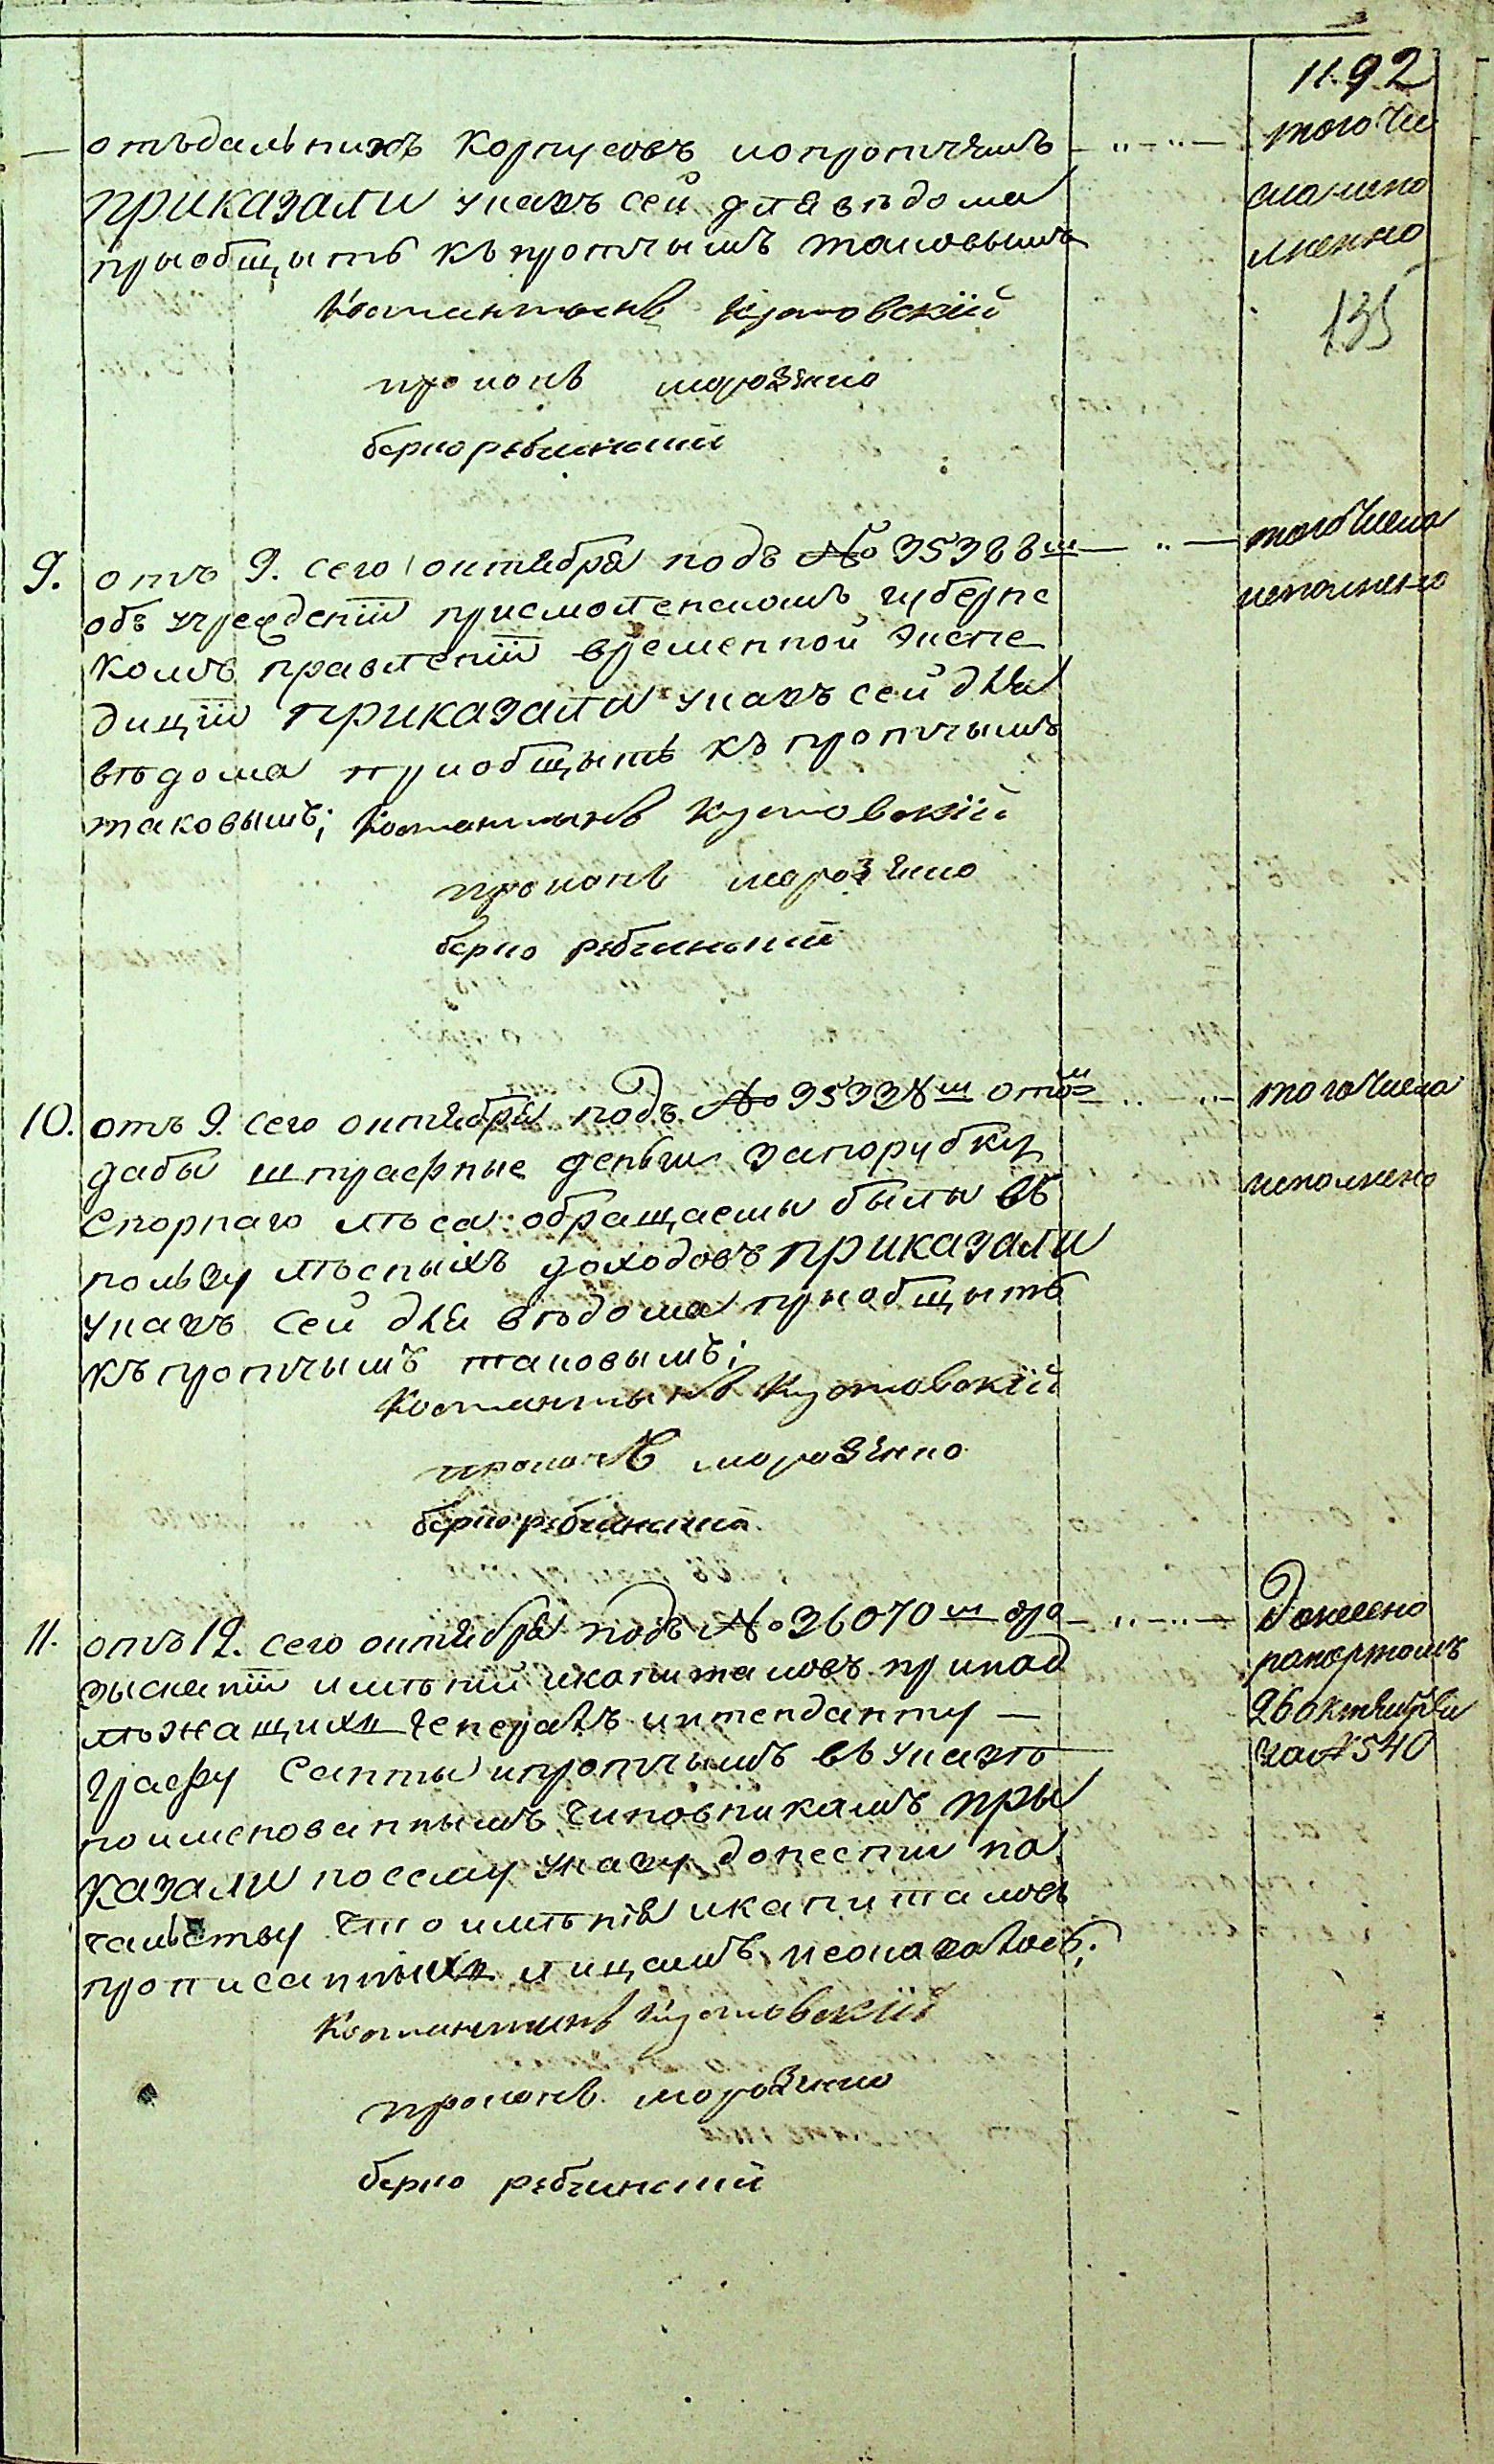 1192
отъдальнихъ корпусовъ ипротчимъ
приказали указъ сей для вѣдома
пріобщыть къ протчымъ таковымъ
Константинъ Кутовскій
Прокопъ Морозенко
того чи
сла испо
лненно
135
9. отъ 9. сего октября подъ № 35388 м
объ учрежденіи присмоленскомъ губернс
комъ правленіи временной экспе
диціи приказали указъ сей для
вѣдома приобщыть къ протчымъ
таковымъ; Константинъ Кутовскій
Прокопъ Морозенко
того числа
исполнено
10. отъ 9. сего октября подъ № 35334 м отомъ
дабы штрафные деньги запорубку
спорнаго лѣса обращаемы были въ
пользу лѣсныхъ доходовъ приказали
указъ сей для вѣдома пріобщыть
къ протчымъ таковымъ;
Константинъ Кутовскій
Прокопъ Морозенко
того числа
исполнено
11. отъ 12. сего октября подъ № 36070 м оро
зысканіи имѣній икапиталовъ принад
лѣжащихъ Генералъ интенданту
графу Санты ипротчымъ въ указѣ
поименованнымъ чиновникамъ при
казали посему указу донести на
чальству что имѣнія икапиталовъ
прописанныхъ лицамъ неоказалось;
Константинъ Кутовскій
Прокопъ Морозенко
Донесено
рапортомъ
26 октября
за № 540